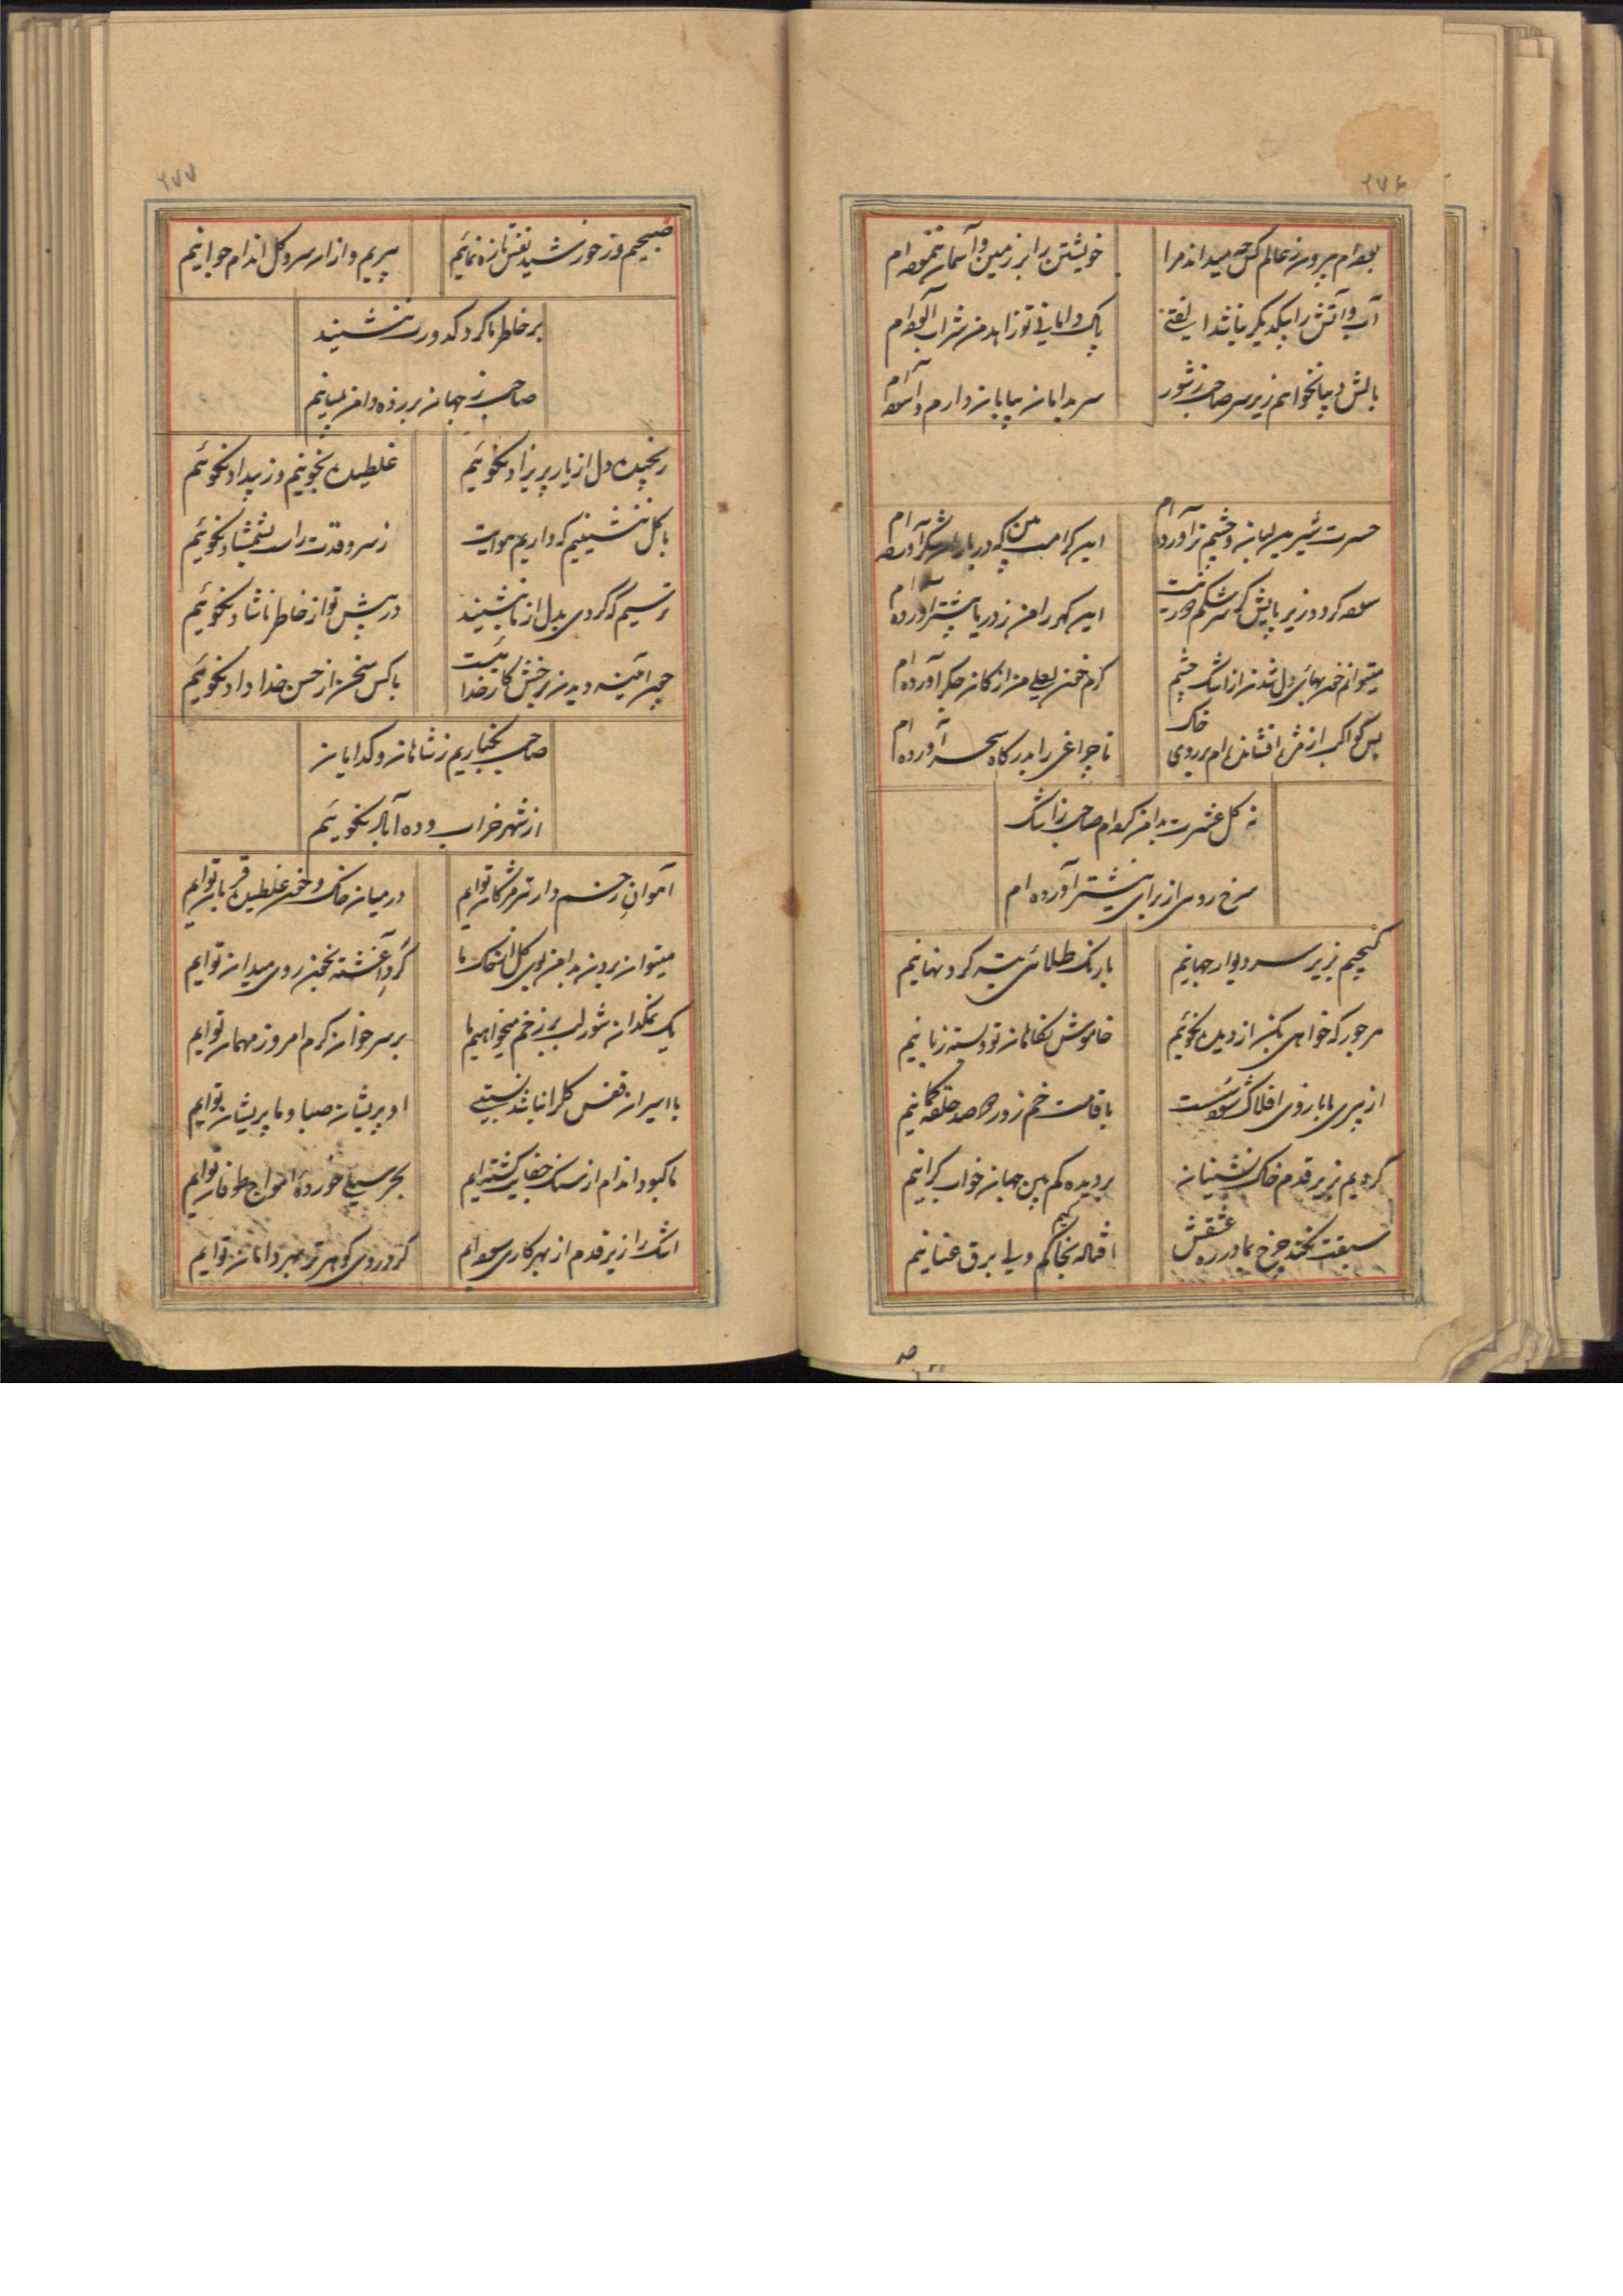 ۲۷۶
بوده‌ام بیرون ز عالم کس چه میداند مرا
خویشتن را بر زمین و آسمان ننموده‌ام
آب و آتش را بیکدیگر نباشد الفتی
پاک دامانی تو زاهد من شراب آلوده‌ام
بالش دیبا نخواهم زیر سر صاحب ز شور
سر بدامان بیابان دارم و آسوده‌ام
حسرت شیرین لبان و چشم تر آورده‌ام
این کرامت بین که در بار شکر آورده‌ام
سوده گردد زیر پایش گوهر اشکم
این گهر را من ز دریا پیشتر آورده‌ام
میتوانم خونبهای دل شدن از اشک چشم
گرم خون لعلی من از کان جگر آورده‌ام
بس کواکب از مژه افشانده‌ام بر روی خاک
تا چراغی را بدرگاه سحر آورده‌ام
نه گل عشرت بدامن کرده‌ام صاحب ز اشک
سرخ روی از برای نیشتر آورده‌ام
گنجیم بزیر سر دیوار جهانیم
با رنگ طلائی ته گرد نهانیم
هر جور که خواهی بکن از دیده نگوئیم
خاموش نگاهان تو و بسته زبانیم
از پیری ما بازوی افلاک شود سست
با قامت خم زور ده صد حلقه کمانیم
گردیم بزیر قدم خاک نشینان
بر دیده کم بین جهان خواب گرانیم
سبقت نکند چرخ بما در ره عشقش
افتاده بخاکیم ولی برق عنانیم
۲۷۷
صبحیم و ز خورشید نفس تازه نمائیم
پیریم و ازان سرو گل اندام جوانیم
بر خاطر ما گرد کدورت ننشیند
صاحب ز جهان بر زده دامن بمیانیم
رنجیده دل از یار پریزاد نگوئیم
غلطیده بخونیم و ز بیداد نگوئیم
با گل ننشینیم که داریم هوایت
ز سرو قدت راست بشمشاد نگوئیم
ترسیم که گردی بدل از ما بنشیند
در پیش تو از خاطر ناشاد نگوئیم
چون آینه دیدن برخش کار خدائیست
با کس سخن از حسن خداداد نگوئیم
صاحب بخبر داریم ز شاهان و گدایان
از شهر خراب و ده آباد نگوئیم
آهوان زخم دار تیر مژگان توایم
در میان خاک و خون غلطیده قربان توایم
میتوان بردن بدامن بوی گل از خاک ما
گرد آغشته بخون روی میدان توایم
یک نمکدان شور لب بر زخم میخواهیم ما
بر سر خوان کرم امروز مهمان توایم
با اسیران قفس گل را نباشد نسبتی
او پریشان صبا و ما پریشان توایم
ما کبود اندام از سنگ جفایت گشته‌ایم
بحر سیلی خورده امواج طوفان توایم
اشک را زیر قدم از بهر کاری سوده‌ایم
گرد روی گوهر تر بهر دامان توایم